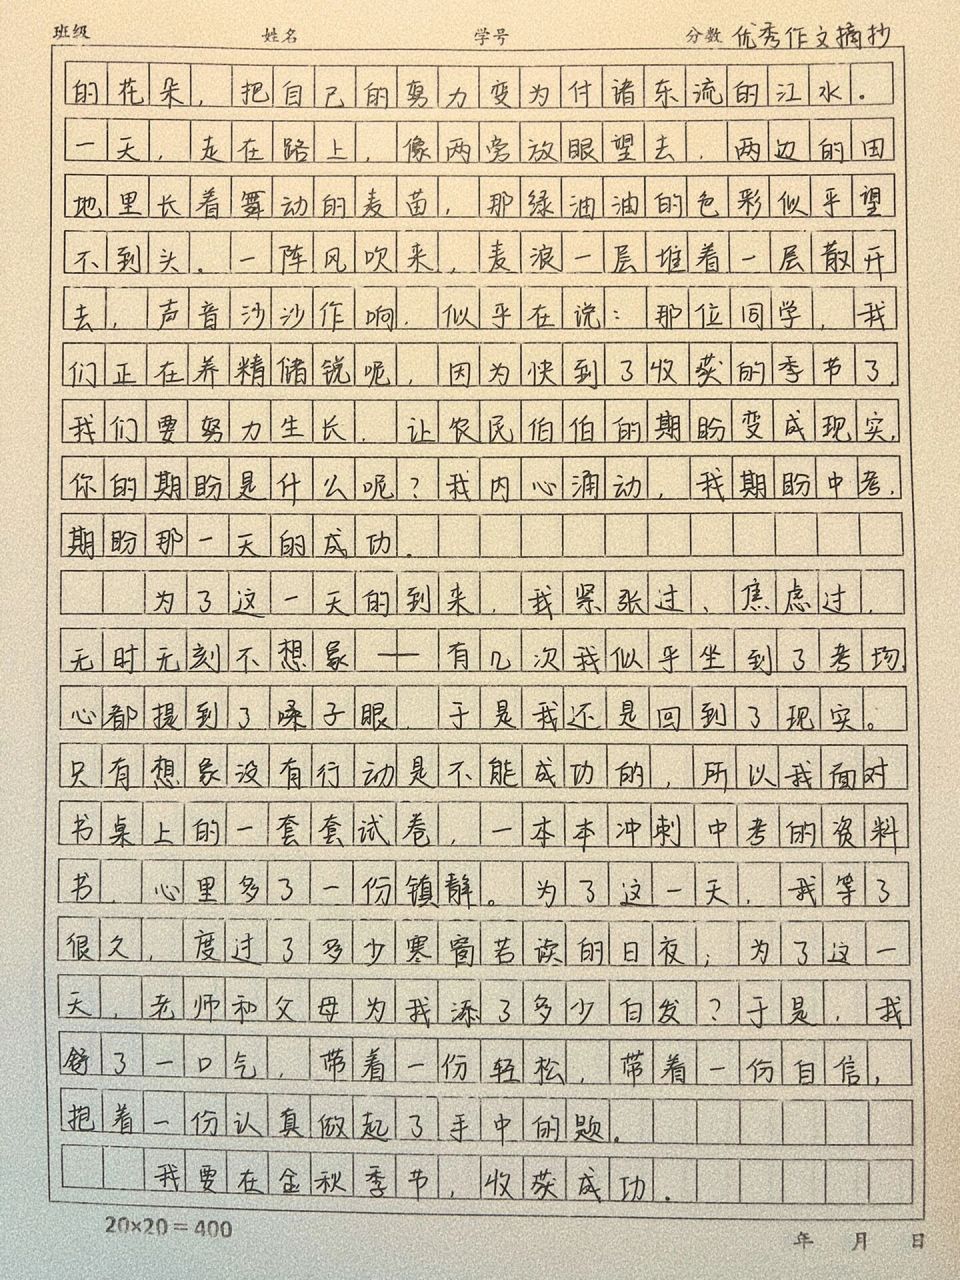 班级 姓名 学号 分数 优秀作文摘抄
的花朵，把自己的努力变为付诸东流的江水。
一天，走在路上，像两旁放眼望去，两边的田
地里长着舞动的麦苗，那绿油油的色彩似乎望
不到头。一阵风吹来，麦浪一层堆着一层散开
去，声音沙沙作响，似乎在说：那位同学，我
们正在养精储锐呢，因为快到了收获的季节了，
我们要努力生长，让农民伯伯的期盼变成现实，
你的期盼是什么呢？我内心涌动，我期盼中考，
期盼那一天的成功。
为了这一天的到来，我紧张过、焦虑过，
无时无刻不想象——有几次我似乎坐到了考场，
心都提到了嗓子眼，于是我还是回到了现实。
只有想象没有行动是不能成功的，所以我面对
书桌上的一套套试卷，一本本冲刺中考的资料
书，心里多了一份镇静。为了这一天，我等了
很久，度过了多少寒窗苦读的日夜；为了这一
天，老师和父母为我添了多少白发？于是，我
舒了一口气，带着一份轻松，带着一份自信，
抱着一份认真做起了手中的题。
我要在金秋季节，收获成功。
20×20＝400
年 月 日